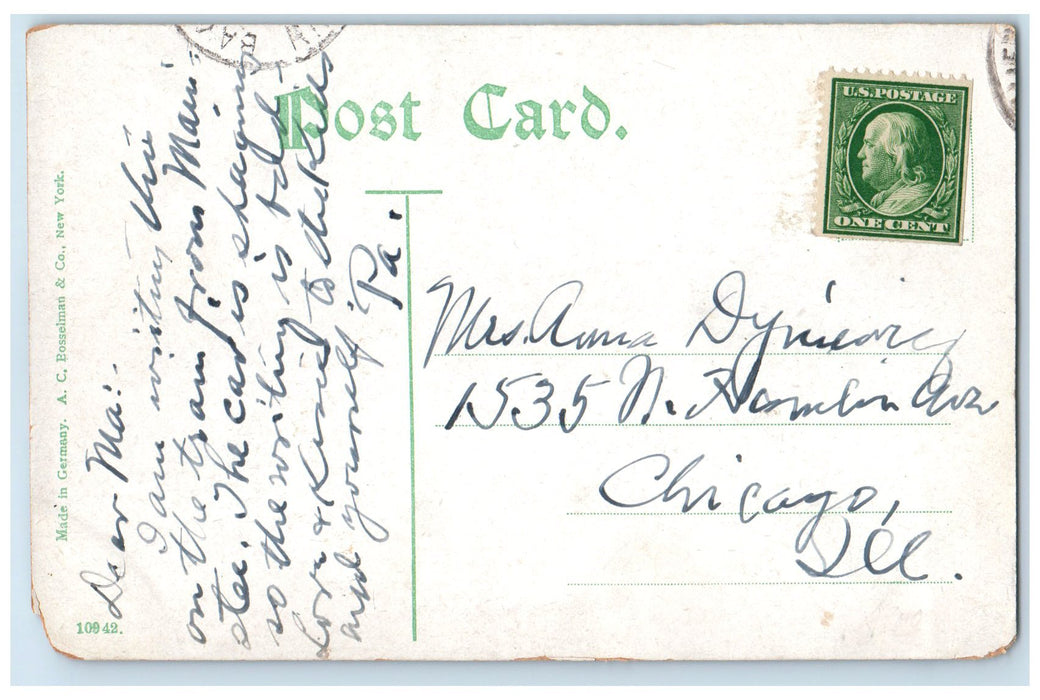 Post Card.
U.S. POSTAGE
ONE CENT
Made in Germany. A. C. Bosselman & Co., New York.
10942.
Dear Ma:-
I am writing this
on the train from Mani-
stee. The car is shaking
so the writing is bad -
Love & Kisses to the Kids
and yourself
Pa.
Mrs. Anna
1535 N. Hamlin Ave
Chicago,
Ill.